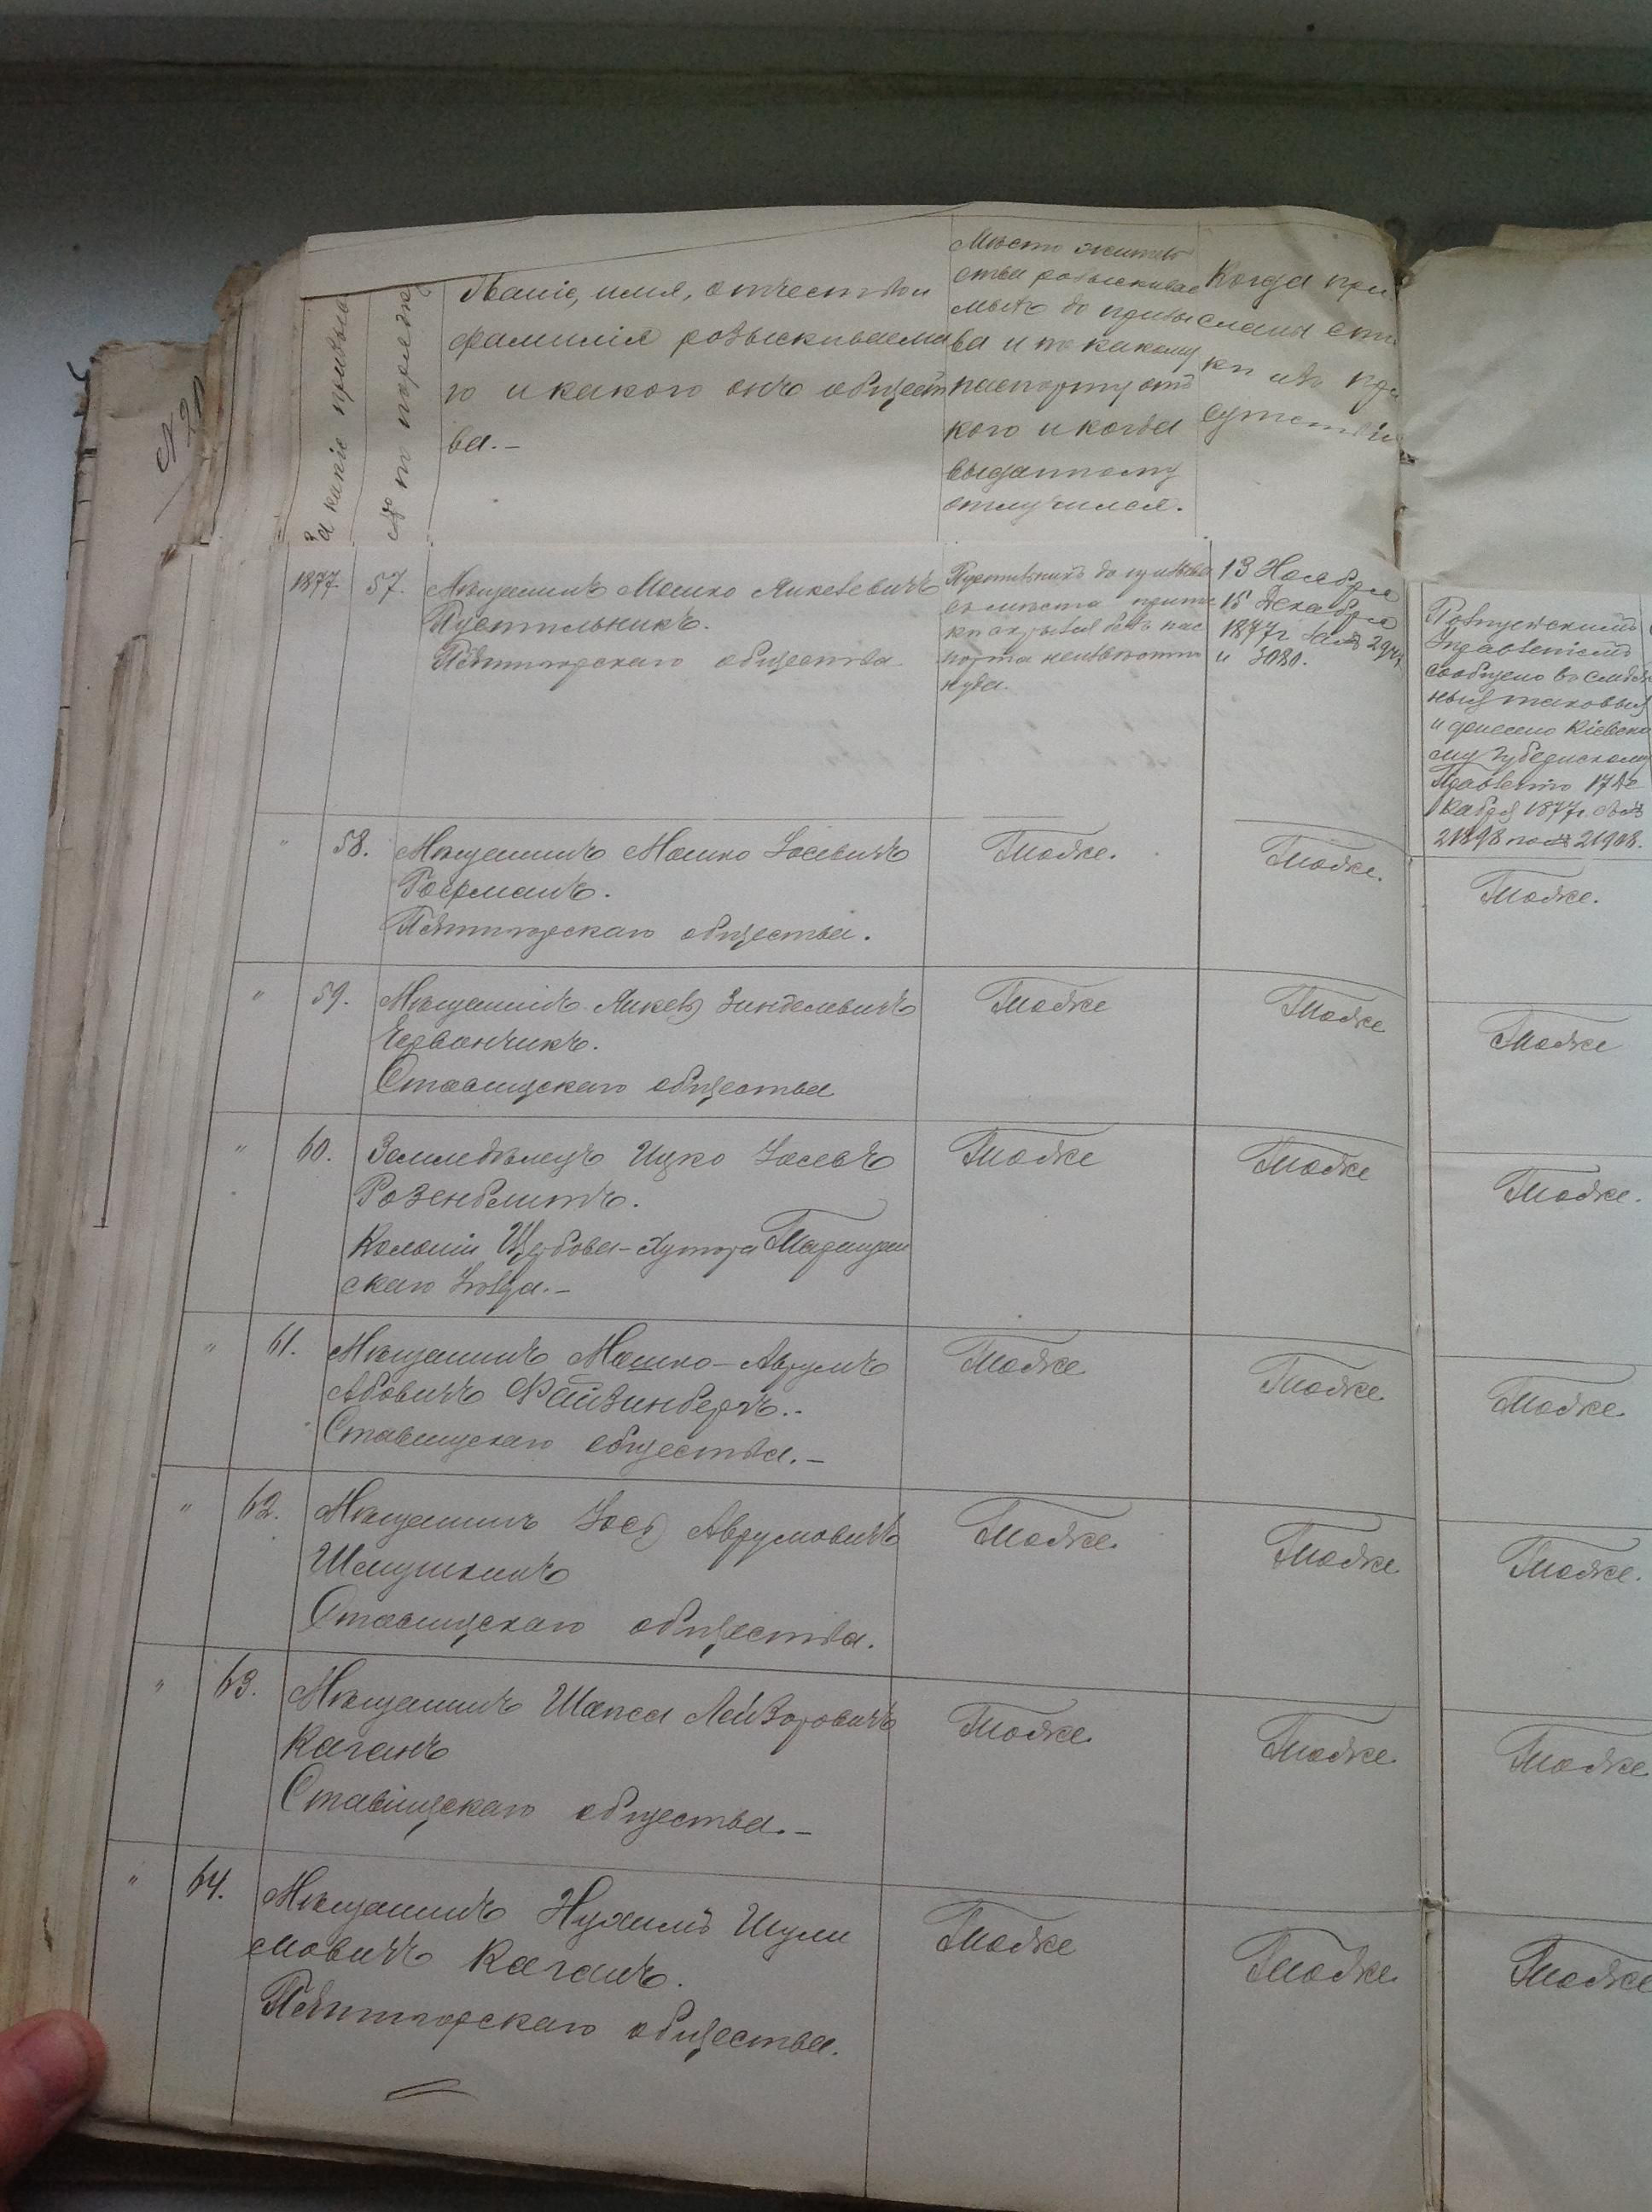 За какіе призывы
№ по порядку
Званіе, имя, отчество и
фамилія розыскиваема
го и какого онъ общест
ва.-
Мѣсто житель
ства розыскивае
маго до призы
ва и по какому
паспорту отъ
кого и когда
выданному
отлучился.
Когда при
сланы спи
ки изъ при
сутствія
1877. 57. Мѣщанинъ Мошко Янкелевичъ
Пустильникъ.
Пятигорскаго общества
до призыва
мѣста припи
ски скрылся безъ пас
порта неизвѣстно
куда.
13 Ноября
15 Декабря
1877 г
и 3080.
Управленіемъ
сообщено въ
и донесено Кіевско
му Губернскому
Правленію 17 Де
кабря 1877 г. за №
21898 по № 21908.
" 58. Мѣщанинъ Мошко Іосевичъ
Ройфманъ.
Пятигорскаго общества.
Тоже.
Тоже.
Тоже.
" 59. Мѣщанинъ Янкель Зинделевичъ
Червончикъ.
Ставищскаго общества
Тоже
Тоже
Тоже
" 60. Земледѣлецъ Ицко Іосевъ
Розенблитъ.
Колоніи Щербова-Хутора Таращан
скаго Уѣзда.-
Тоже
Тоже
Тоже.
" 61. Мѣщанинъ Мошко-Аврумъ
Абовичъ Файзинбергъ.-
Ставищскаго общества.-
Тоже
Тоже
Тоже
" 62. Мѣщанинъ Іось Аврумовичъ
Шмушкинъ
Ставищскаго общества.
Тоже.
Тоже
Тоже.
" 63. Мѣщанинъ Шапса Лейзоровичъ
Каганъ
Ставищскаго общества.-
Тоже
Тоже
Тоже
" 64. Мѣщанинъ Нухимъ Шули
мовичъ Каганъ.
Пятигорскаго общества.
Тоже
Тоже
Тоже